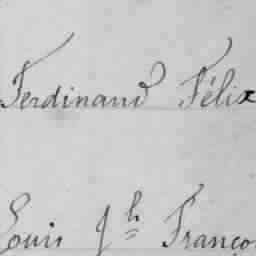 Ferdinand Félix
Louis Jh Franço